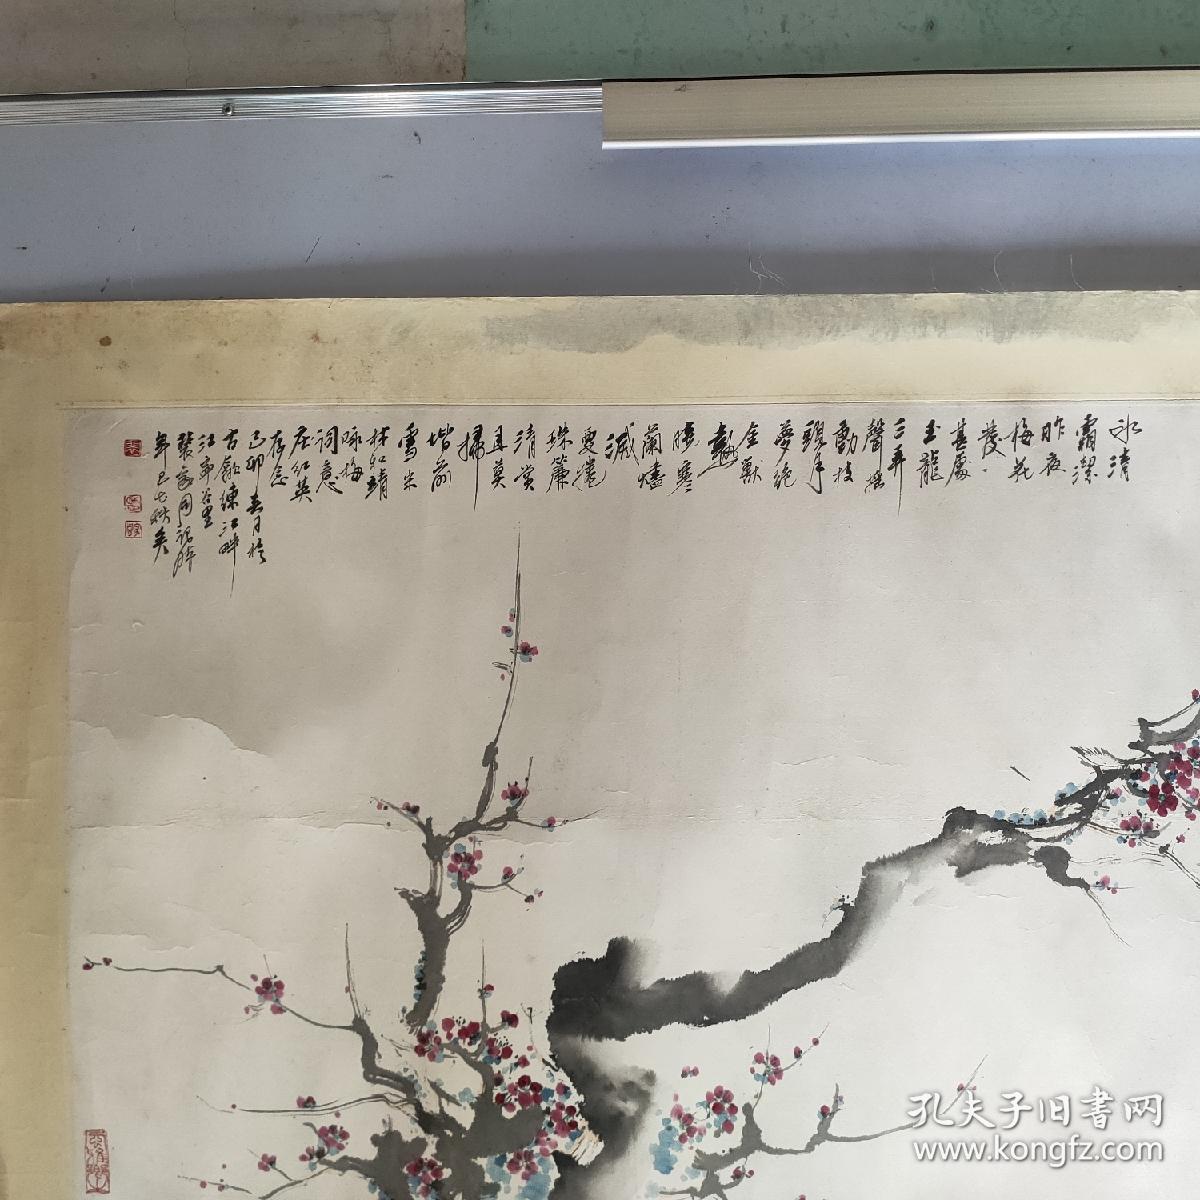 冰清
霜潔
昨夜
梅花
發
甚處
玉龍
三弄
聲搖
動枝
頭月
夢絕
金獸
爇
曉寒
蘭燼
滅
要捲
珠簾
清賞
且莫
掃
堦前
雪宋
林和靖
咏梅
詞意
紅英
存念
己卯春月於
古歙練江畔
裴家同
年已七秩矣
孔夫子旧書网
www.kongfz.com